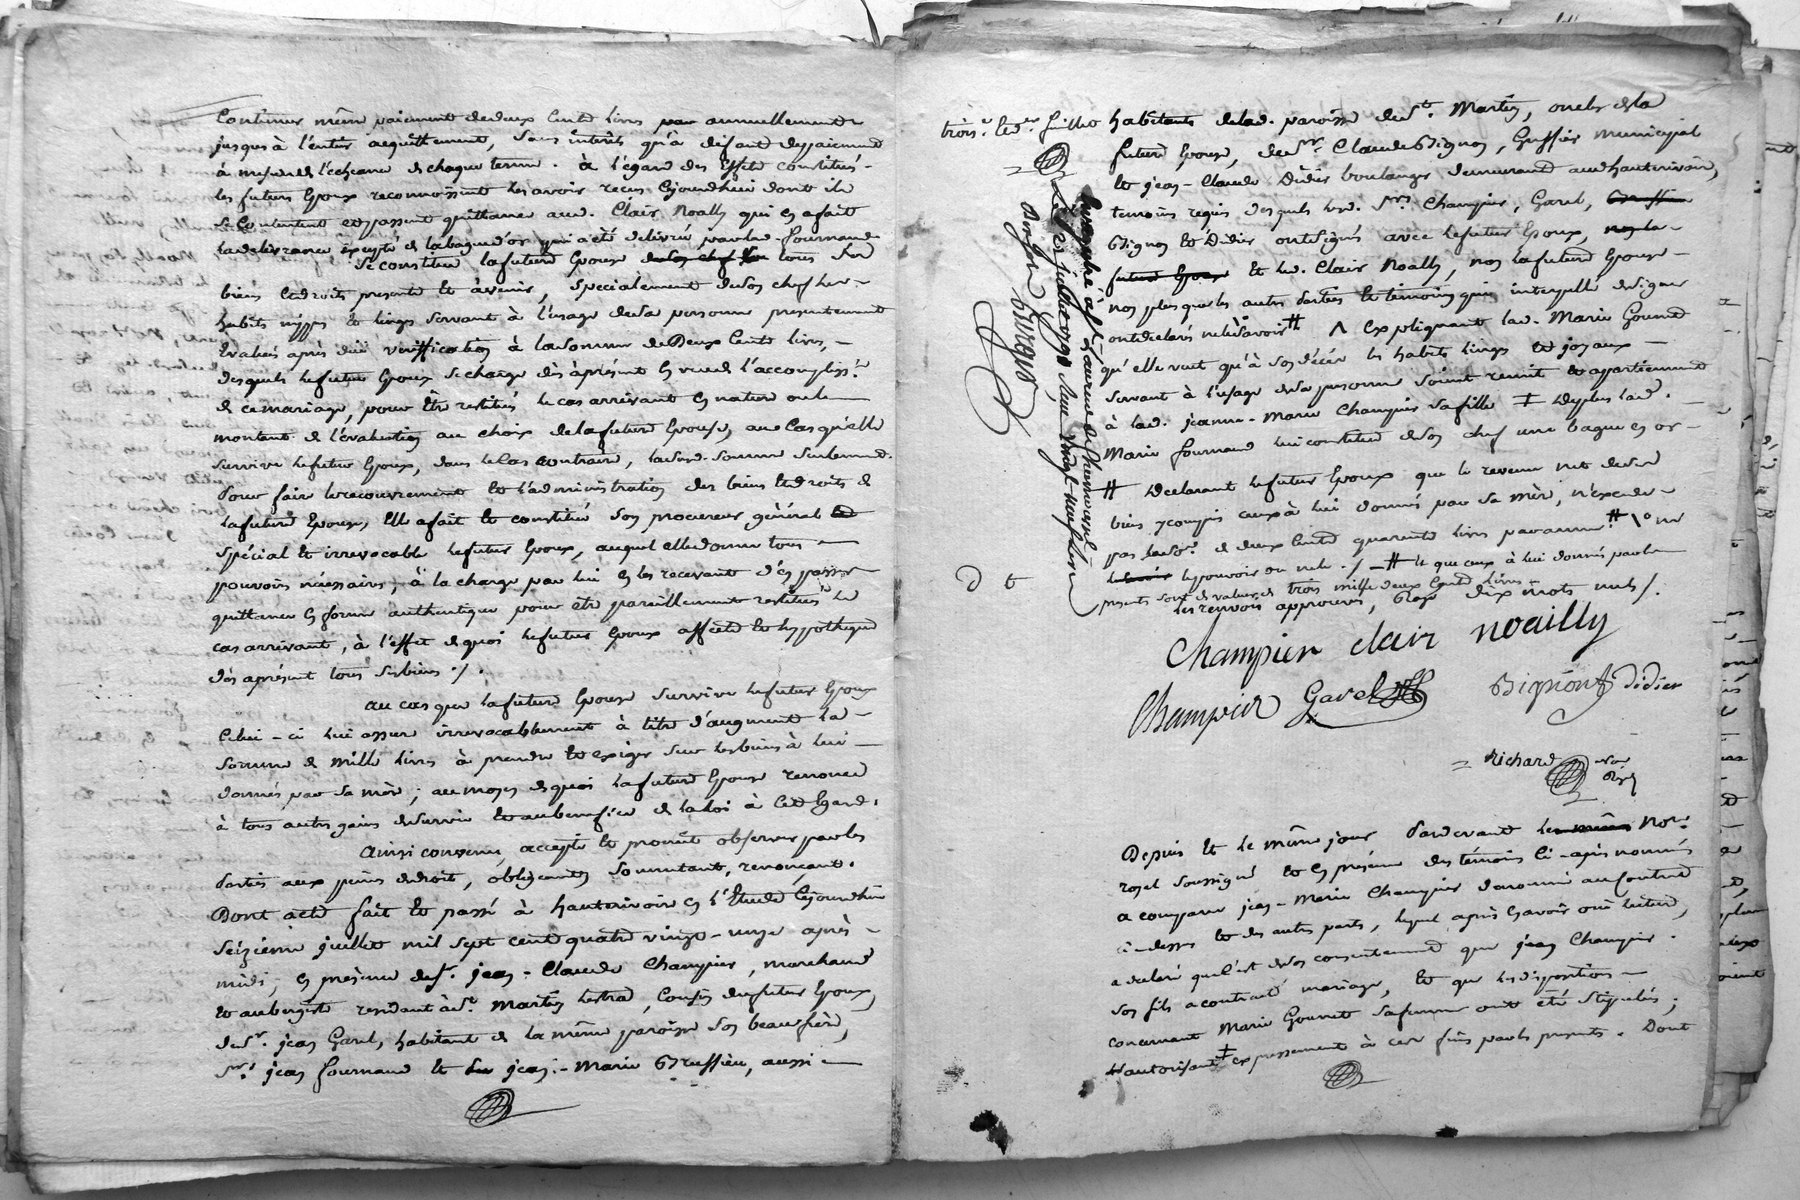 Continuer même paiement de deux Cents livres par annuellement
jusques à l'entier acquittement, Sans intérêts qu'à défaut de paiement
à mesure de l'échéance de chaque terme. à l'égard des Effets constitués
les futurs Epoux reconnoissent les avoir reçus cejourdhui dont ils
se Contentent et passent quittance aud. Clair Noally qui en a fait
la delivrance, excepté de la bague d'or qui a été delivrée par lad. fournand
Se constitue la future Epouse tous Ses
biens et droits presents et à venir, Spécialement de Son chef Ses
habits nippes et linges Servant à l'usage de Sa personne presentement
Evalués après due vérification à la Somme de Deux Cents livres,
desquels le futur Epoux Se charge dès àprésent en vue de l'accompliss.t
de ce mariage, pour être restitués le cas arrivant en nature ou le
montant de l'évaluation au choix de la future Epouse, au Cas qu'elle
Survive le futur Epoux, dans le Cas contraire, lad. Somme Seulement.
Pour faire le recouvrement et l'administration des biens et droits de
la future Epouse, Elle a fait et constitué Son procureur général
Spécial et irrévocable le futur Epoux, auquel elle donne tous
pouvoirs nécessaires, à la charge par lui en les recevant d'en passer
quittance en forme authentique pour être pareillement restitués le
cas arrivant, à l'effet de quoi le futur Epoux affecte et hypothèque
dès àprésent tous Ses biens ./.
au cas que la future Epouse Survive le futur Epoux
Celui-ci lui assure irrévocablement à titre d'augment la
Somme de mille livres à prendre et exiger Sur les biens à lui
donnés par Sa mère; au moyen de quoi la future Epouse renonce
à tous autres gains de Survie et au bénéfice de la loi à Cet Egard.
Ainsi convenu, accepté et promit observer par les
Parties aux peines de droit, obligeants, Soumettant, renonçant.
Dont acte fait et passé à hauterivoire en l'Etude Cejourdhui
Seizième juillet mil sept cent quatre vingt-onze après
midi, en présence de s.r jean-Claude Champier, marchand
et aubergiste residant à S.t Martin lestrat, Cousin du futur Epoux,
de s.r jean Garel, habitant de la même paroisse Son beaufrère,
s.rs jean fournand et jean-Marie Bruffieu, aussi
habitants de lad. paroisse de S.t Martin, oncles de la
future Epouse, de s.r Claude Bignon, Greffier municipal
et jean-Claude Didier boulanger demeurant aud hauterivoire,
temoins requis desquels lesd. s.rs Champier, Garel,
Bignon et Didier ont Signés avec le futur Epoux,
et led. Clair Noally, non la future Epouse
non plus que les autres Parties et témoins qui interpellé de Signer
ont déclarés ne le Savoir # ∧ Expliquant lad. Marie Gounet
qu'elle veut qu'à Son décès les habits linges et joyaux
Servant à l'usage de Sa personne Soient remit et appartiennent
à lad. jeanne-Marie Champier Sa fille ‡ de plus lad.
Marie fournand lui constitue de Son chef une bague en or
# Déclarant le futur Epoux que le revenu net de Ses
biens y compris ceux à lui donnés par Sa mère, n'excede
pas la So.e de deux Cents quarante livres par année
le pouvoir ou nuls ./. # et que ceux à lui donnés par les
presents Sont de valeur de trois mille deux Cents livres
les renvois approuvés, Rayé dix mots nuls ./.
trois.e led. juillet
Enregistré à S.t Laurent de Chamousset
Le 23 juillet 1791
Burgod
D t
Champier clair noailly
Champier Garel Bignon Didier
Richard no.re
Roy.l
Depuis et le même jour Pardevant No.re
royal Soussigné et en présence des témoins Ci-après nommés
a comparu jean-Marie Champier dénommé au Contrat
ci-dessus et des autres parts, lequel après Savoir ouï lecture,
a déclaré que C'est de Son consentement que jean Champier
Son fils a contracté mariage, et que les dispositions
concernant Marie Gounet Sa femme ont été Stipulées;
L'autorisant ‡ expressement à ces fins par les presents. Dont